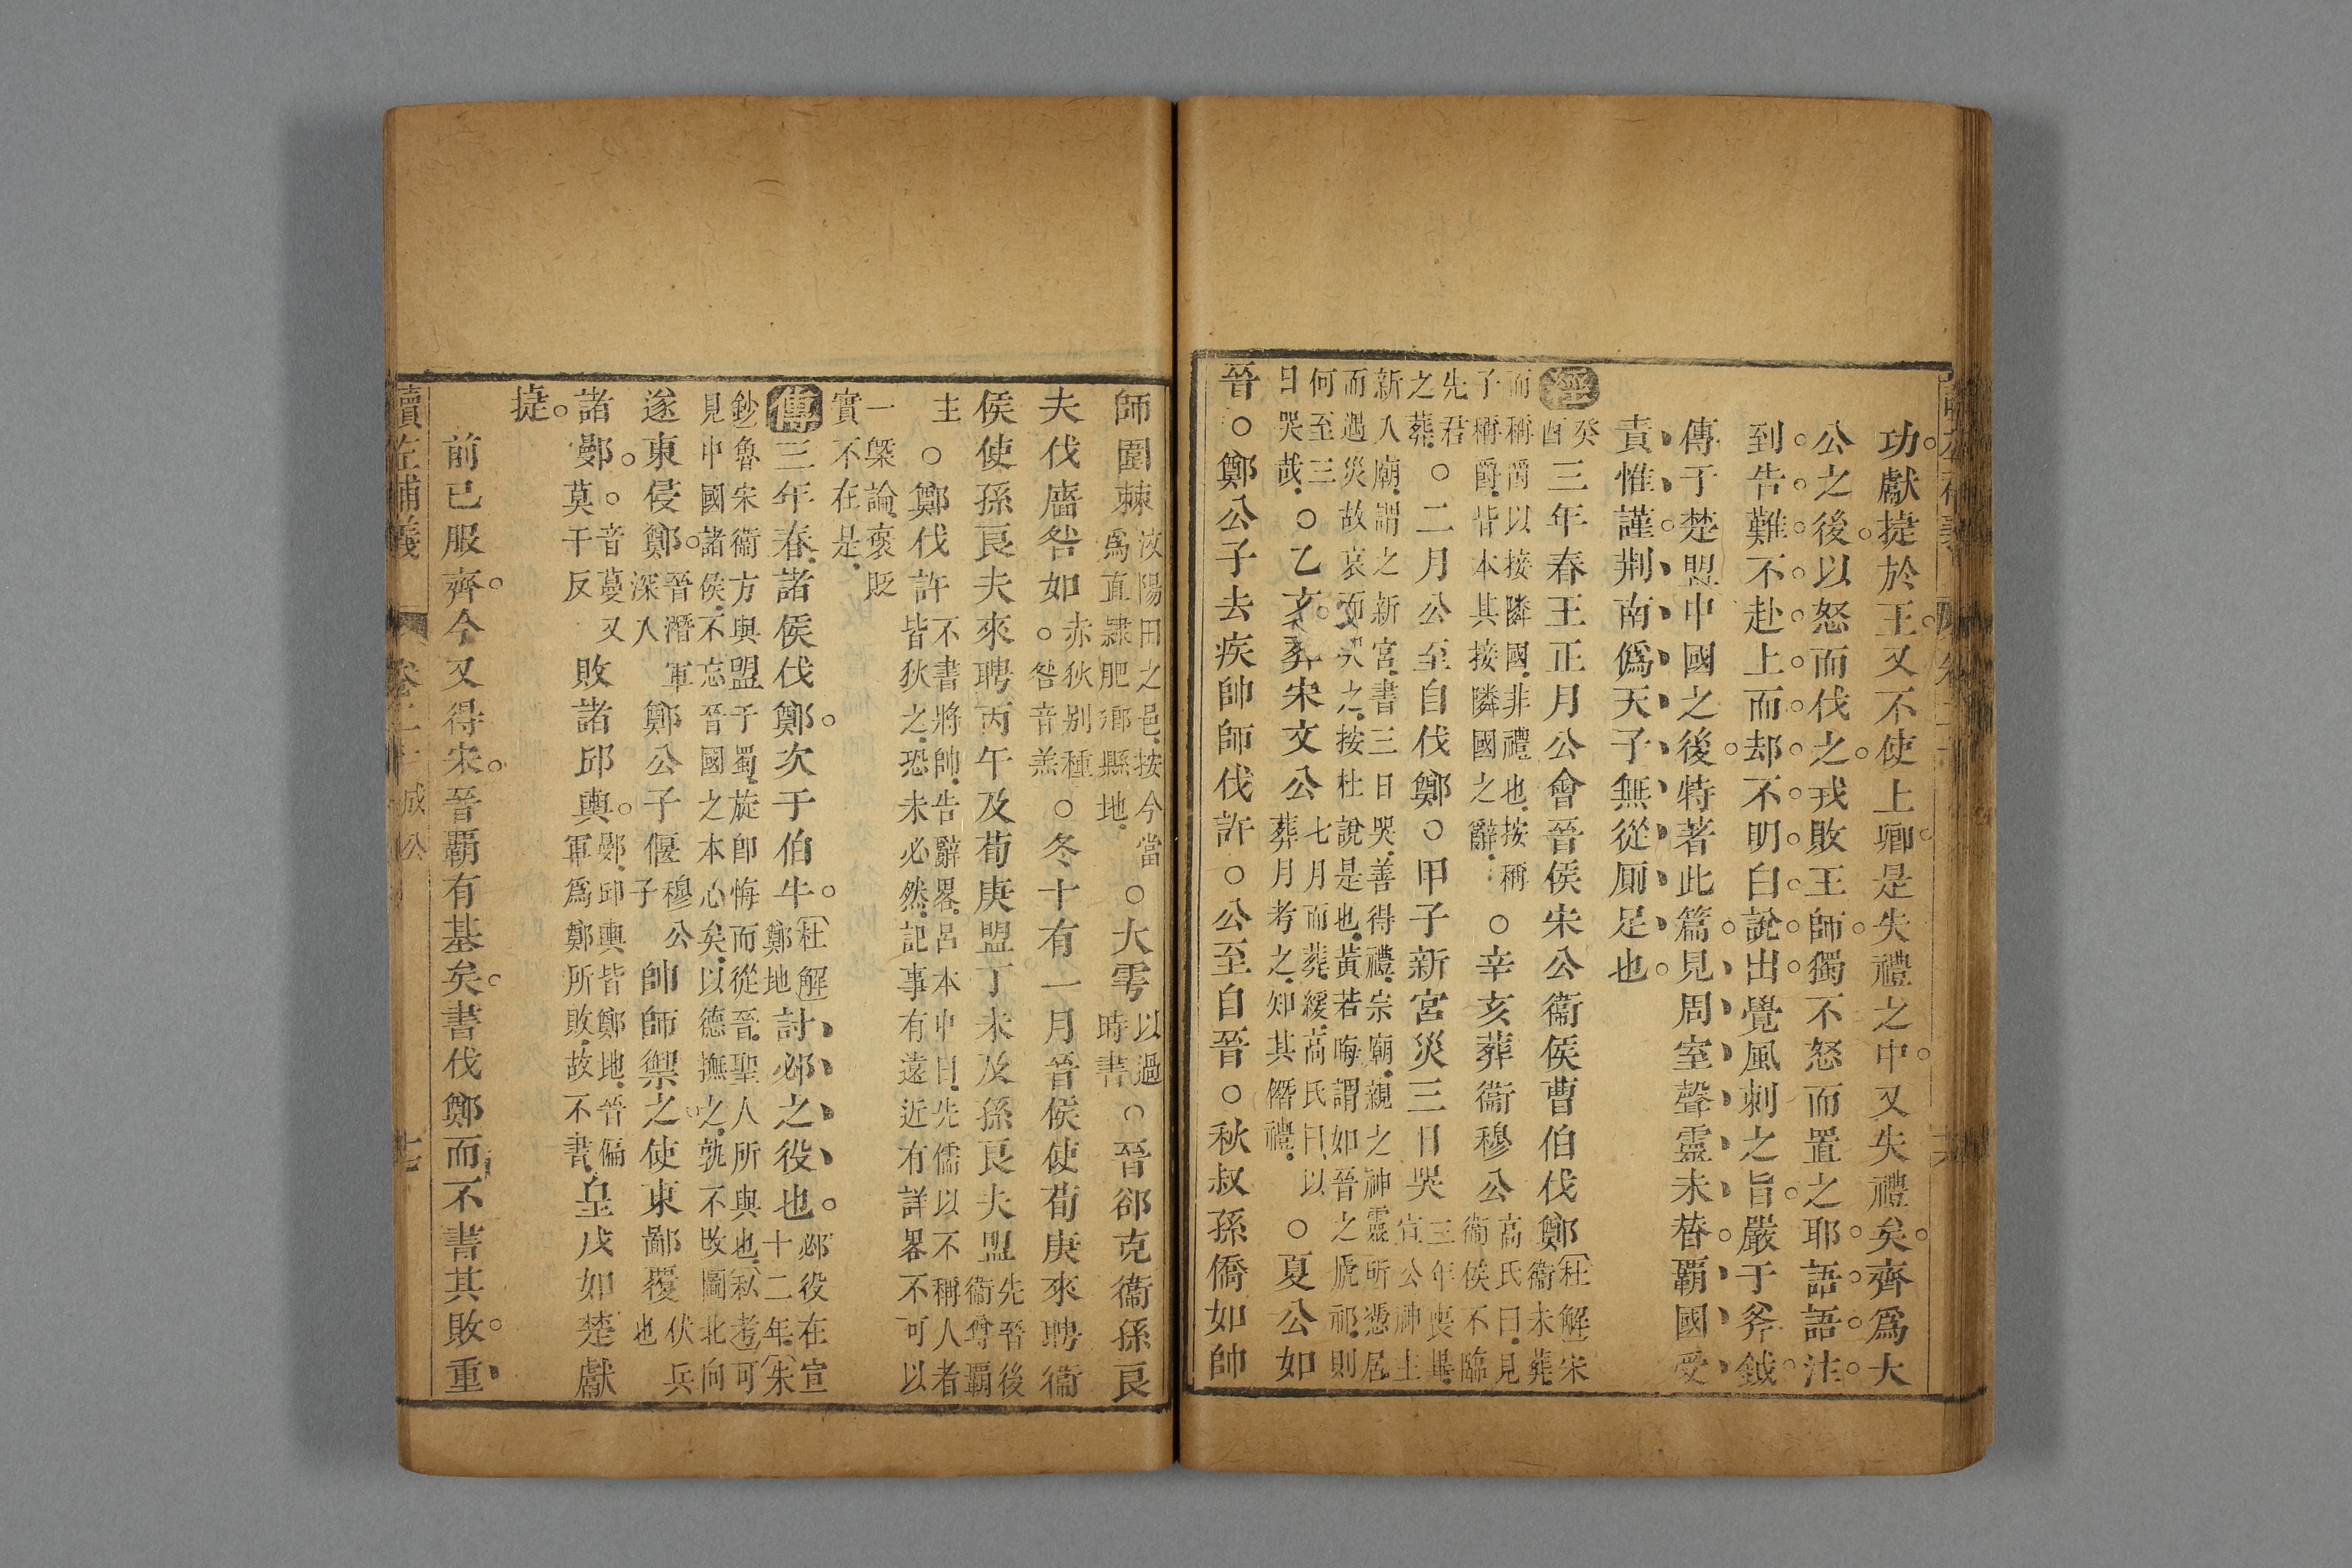 功獻捷於王又不使上卿是失禮之中又失禮矣齊爲大
公之後以怒而伐之戎敗王師獨不怒而置之耶語語注
到告難不赴上而却不明白說出覺風刺之旨嚴于斧鉞
傳于楚盟中國之後特著此篇見周室聲靈未替覇國受
責惟謹荆南僞天子無從厠足也
經 癸酉 三年春王正月公會晉侯宋公衞侯曹伯伐鄭 杜解宋衞未葬
而稱爵以接隣國非禮也按稱子稱爵皆本其接隣國之辭 ○辛亥葬衞穆公 高氏曰見衞侯不臨
先君之葬 ○二月公至自伐鄭○甲子新宮災三日哭 三年喪畢宣公神主
新入廟謂之新宮書三日哭善得禮宗廟親之神靈所憑居
而遇災故哀而哭之按杜說是也黃若晦謂如晉之虒祁則
何至三日哭哉 ○乙亥葬宋文公 七月而葬緩高氏曰以葬月考之知其僭禮 ○夏公如
晉○鄭公子去疾帥師伐許○公至自晉○秋叔孫僑如帥
師圍棘 汶陽田之邑按今當爲直隸肥鄉縣地 ○大雩 以過時書 ○晉郤克衞孫良
夫伐廧咎如 赤狄别種咎音羔 ○冬十有一月晉侯使荀庚來聘衞
侯使孫良夫來聘丙午及荀庚盟丁未及孫良夫盟 先晉後衞尊覇
主 ○鄭伐許 不書將帥告辭畧呂本中曰先儒以不稱人者
皆狄之恐未必然記事有遠近有詳畧不可以
一槩論褒貶實不在是
傳 三年春諸侯伐鄭次于伯牛 杜解鄭地 討邲之役也 邲役在宣十二年朱
鈔魯宋衞方與盟于蜀旋卽悔而從晉聖人所與也私考可
見中國諸侯不忘晉國之本心矣以德撫之孰不敗圖北向
遂東侵鄭 晉潛軍深入 鄭公子偃 穆公子 帥師禦之使東鄙覆 伏兵也
諸鄤 ○音蔓又莫干反 敗諸邱輿 鄤邱輿皆鄭地晉偏軍爲鄭所敗故不書 皇戌如楚獻
捷
前已服齊今又得宋晉覇有基矣書伐鄭而不書其敗重
讀左補義 卷二十 成公 七